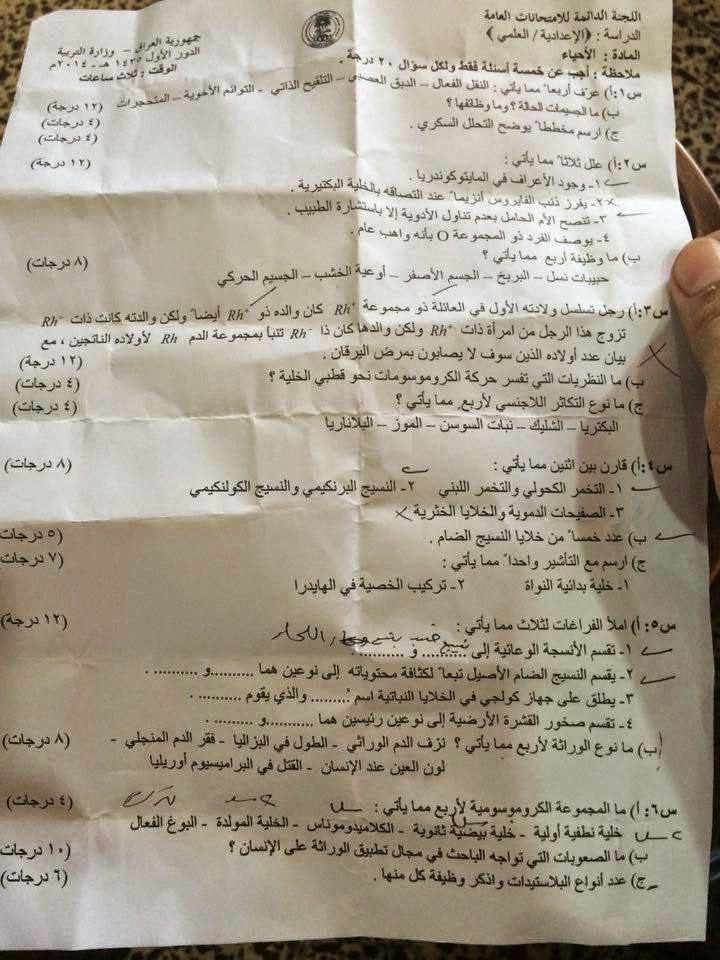 اللجنة الدائمة للامتحانات العامة
الدراسة : (الإعدادية / العلمي)
المادة : الأحياء
جمهورية العراق – وزارة التربية
الدور الأول ١٤٣٥ هـ - ٢٠١٤م
الوقت : ثلاث ساعات
ملاحظة : أجب عن خمسة أسئلة فقط ولكل سؤال ٢٠ درجة .
س١: أ) عرّف أربعاً مما يأتي : النقل الفعال – الدبق العصبي – التلقيح الذاتي – التوائم الأخوية – المتحجرات (١٢ درجة)
ب) ما الجسيمات الحالة ؟ وما وظائفها ؟ (٤ درجات)
ج) ارسم مخططاً يوضح التحلل السكري . (٤ درجات)
س٢: أ) علل ثلاثاً مما يأتي : (١٢ درجة)
١- وجود الأعراف في المايتوكوندريا .
٢- يفرز ذنب الفايروس أنزيماً عند التصاقه بالخلية البكتيرية .
٣- تنصح الأم الحامل بعدم تناول الأدوية إلا باستشارة الطبيب .
٤- يوصف الفرد ذو المجموعة O بأنه واهب عام .
ب) ما وظيفة أربع مما يأتي ؟ (٨ درجات)
حبيبات نسل – البربخ – الجسم الأصفر – أوعية الخشب – الجسيم الحركي
س٣: أ) رجل تسلسل ولادته الأول في العائلة ذو مجموعة Rh⁺ كان والده ذو Rh⁺ أيضاً ولكن والدته كانت ذات Rh⁻
تزوج هذا الرجل من امرأة ذات Rh⁺ ولكن والدها كان ذا Rh⁻ تنبأ بمجموعة الدم Rh لأولاده الناتجين ، مع
بيان عدد أولاده الذين سوف لا يصابون بمرض اليرقان . (١٢ درجة)
ب) ما النظريات التي تفسر حركة الكروموسومات نحو قطبي الخلية ؟ (٤ درجات)
ج) ما نوع التكاثر اللاجنسي لأربع مما يأتي ؟ (٤ درجات)
البكتريا – الشليك – نبات السوسن – الموز – البلاناريا
س٤: أ) قارن بين اثنين مما يأتي : (٨ درجات)
١- التخمر الكحولي والتخمر اللبني ٢- النسيج البرنكيمي والنسيج الكولنكيمي
٣- الصفيحات الدموية والخلايا الخثرية
ب) عدد خمساً من خلايا النسيج الضام . (٥ درجات)
ج) ارسم مع التأشير واحداً مما يأتي : (٧ درجات)
١- خلية بدائية النواة ٢- تركيب الخصية في الهايدرا
س٥: أ) املأ الفراغات لثلاث مما يأتي : (١٢ درجة)
١- تقسم الأنسجة الوعائية إلى .......... و .......... .
٢- يقسم النسيج الضام الأصيل تبعاً لكثافة محتوياته إلى نوعين هما ..........و .......... .
٣- يطلق على جهاز كولجي في الخلايا النباتية اسم .........ُ والذي يقوم .......... .
٤- تقسم صخور القشرة الأرضية إلى نوعين رئيسين هما ..........و .......... .
ب) ما نوع الوراثة لأربع مما يأتي ؟ نزف الدم الوراثي - الطول في البزاليا - فقر الدم المنجلي - (٨ درجات)
لون العين عند الإنسان - القتل في البراميسيوم أوريليا
س٦: أ) ما المجموعة الكروموسومية لأربع مما يأتي : (٤ درجات)
خلية نطفية أولية - خلية بيضية ثانوية - الكلاميدوموناس - الخلية المولدة - البوغ الفعال
ب) ما الصعوبات التي تواجه الباحث في مجال تطبيق الوراثة على الإنسان ؟ (١٠ درجات)
ج) عدد أنواع البلاستيدات واذكر وظيفة كل منها . (٦ درجات)